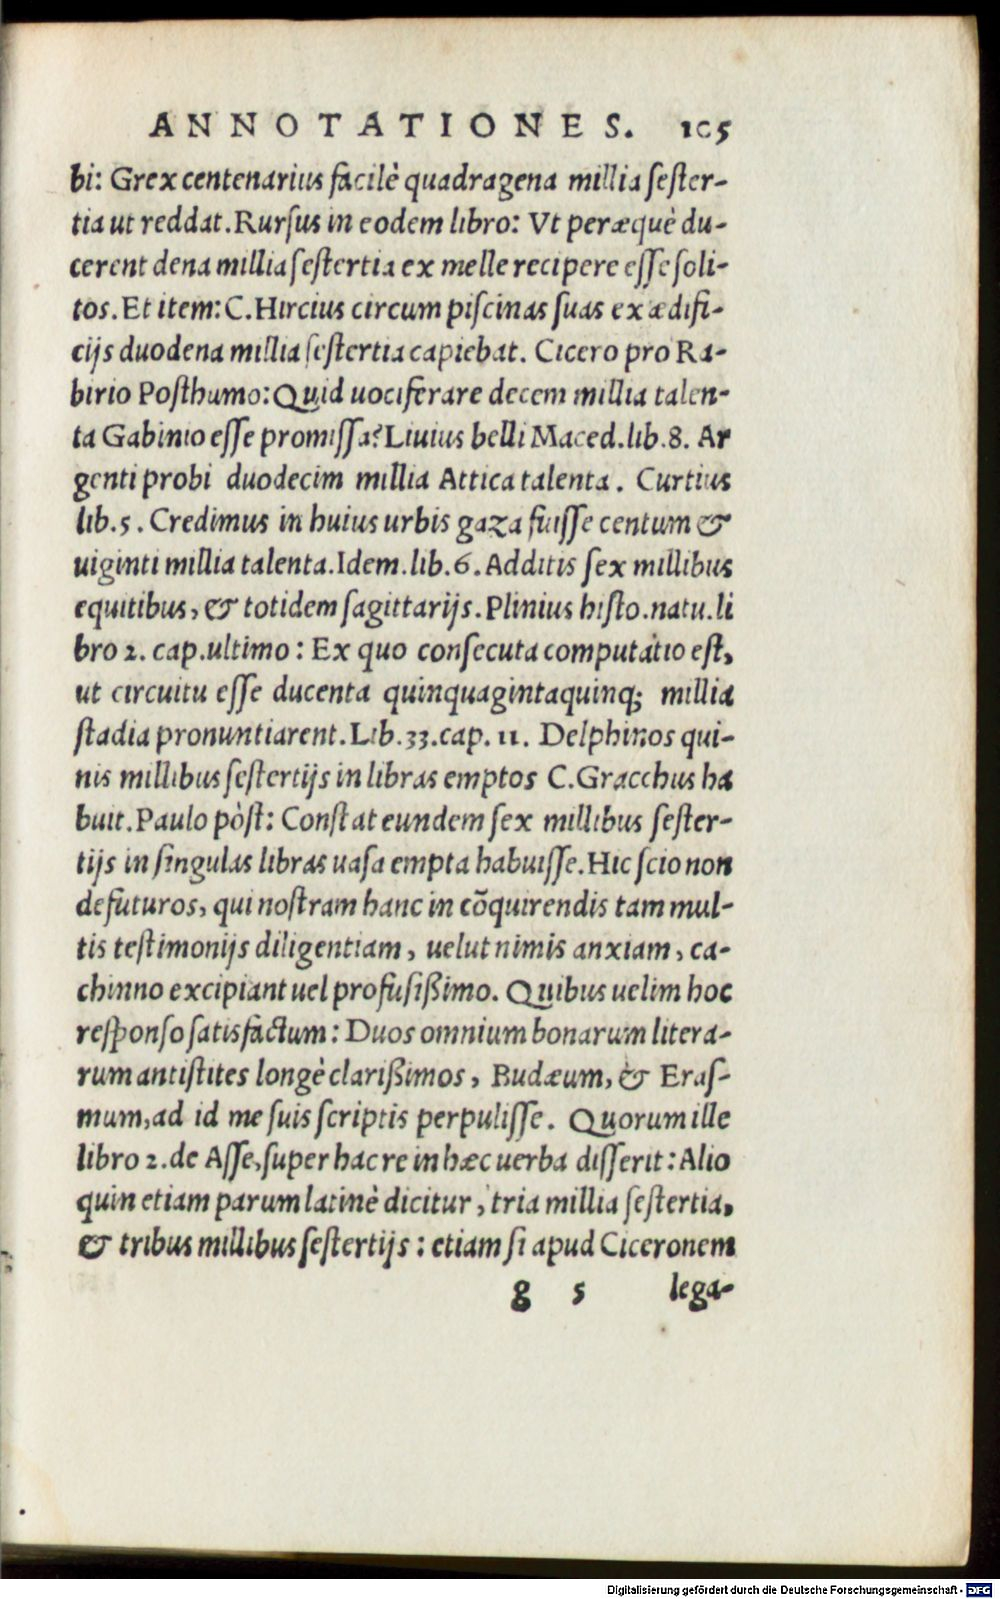 ANNOTATIONES. 105
bi: Grex centenarius facilè quadragena millia sester-
tia ut reddat. Rursus in eodem libro: Vt peræquè du-
cerent dena millia sestertia ex melle recipere esse soli-
tos. Et item: C. Hircius circum piscinas suas ex ædifi-
cijs duodena millia sestertia capiebat. Cicero pro Ra-
birio Posthumo: Quid uociferare decem millia talen-
ta Gabinio esse promissa? Liuius belli Maced. lib. 8. Ar
genti probi duodecim millia Attica talenta. Curtius
lib. 5. Credimus in huius urbis gaza fuisse centum &
uiginti millia talenta. Idem. lib. 6. Additis sex millibus
equitibus, & totidem sagittarijs. Plinius histo. natu. li
bro 2. cap. ultimo: Ex quo consecuta computàtio est,
ut circuitu esse ducenta quinquagintaquinq; millia
stadia pronuntiarent. Lib. 33. cap. 11. Delphinos qui-
nis millibus sestertijs in libras emptos C. Gracchus ha
buit. Paulo pòst: Constat eundem sex millibus sester-
tijs in singulas libras uasa empta habuisse. Hic scio non
defuturos, qui nostram hanc in cõquirendis tam mul-
tis testimonijs diligentiam, uelut nimis anxiam, ca-
chinno excipiant uel profusißimo. Quibus uelim hoc
responso satisfactum: Duos omnium bonarum litera-
rum antistites longè clarißimos, Budæum, & Eras-
mum, ad id me suis scriptis perpulisse. Quorum ille
libro 2. de Asse, super hac re in hæc uerba disserit: Alio
quin etiam parum latinè dicitur, tria millia sestertia,
& tribus millibus sestertijs: etiam si apud Ciceronem
g 5 lega-
Digitalisierung gefördert durch die Deutsche Forschungsgemeinschaft - DFG